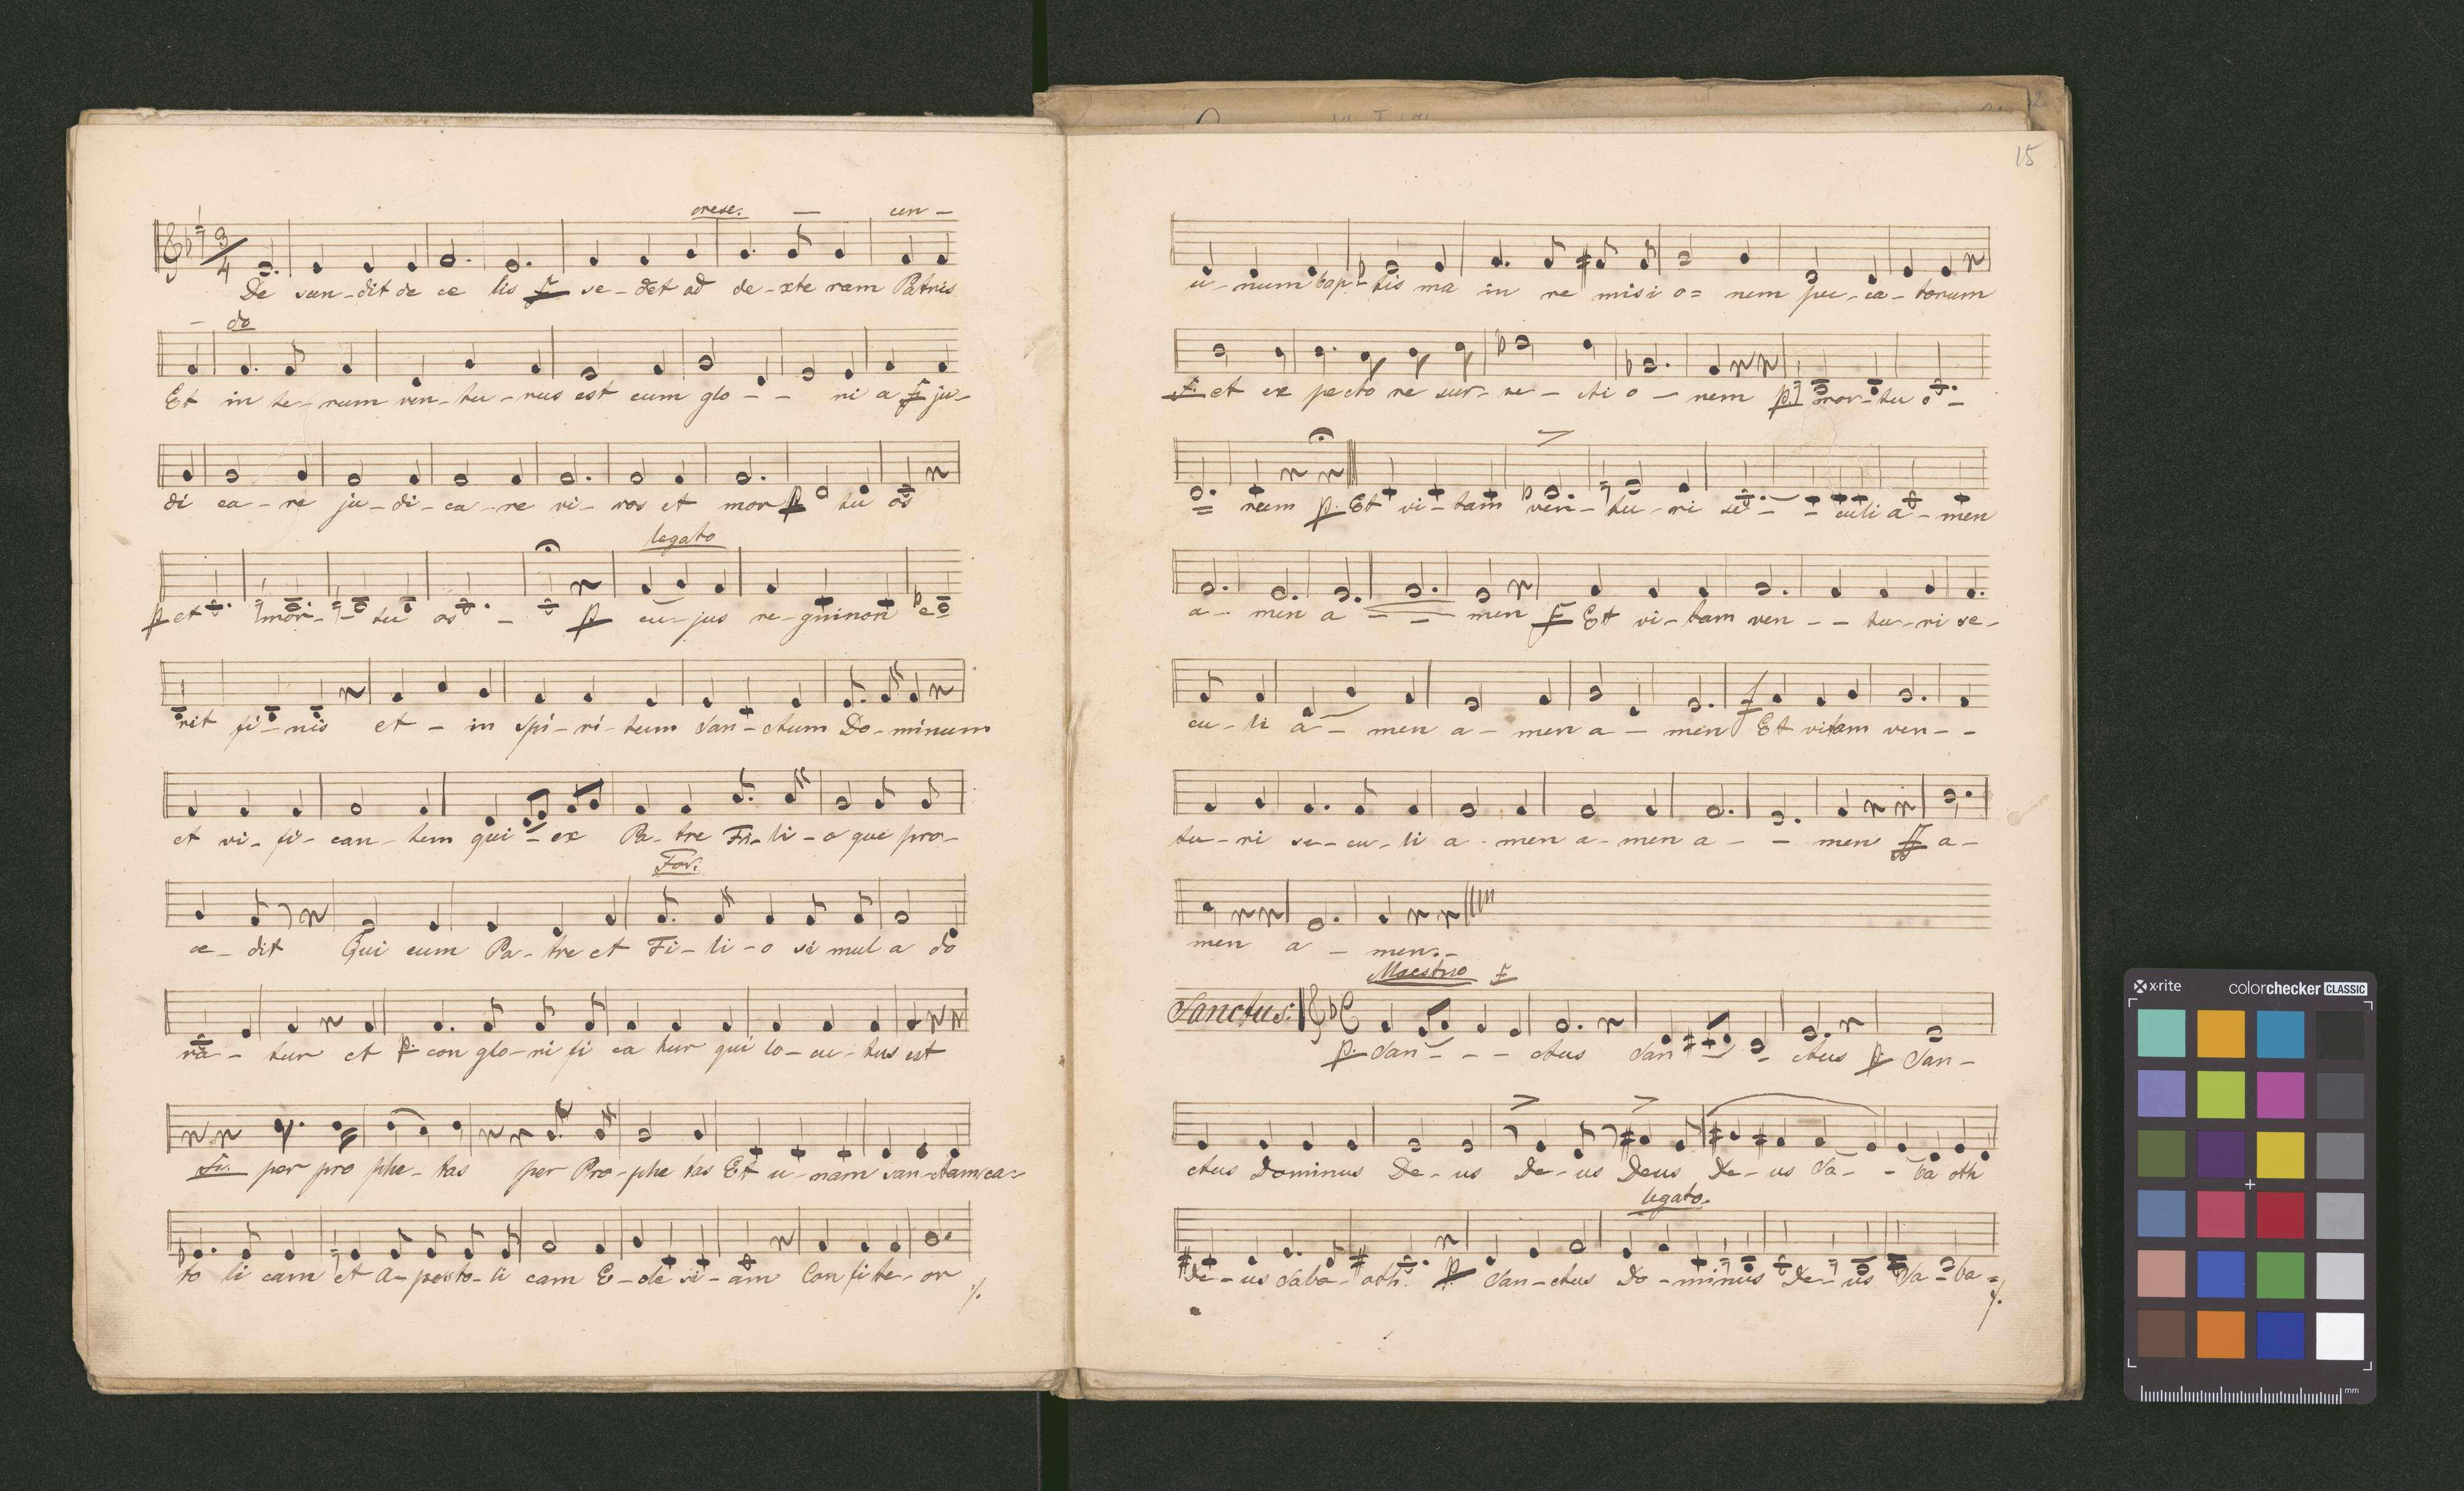 cresc. — cen —
3/4 De scen-dit de ce lis f se-det ad de-xte ram Patris
— do
Et in te-rum ven-tu-rus est cum glo - - ri a f ju-
di ca-re ju-di-ca-re vi-ros et mor p tu os
legato
p et mor- - tu os - p cu-jus re-gni non e =
rit fi-nis et - in spi-ri-tum San-ctum Do-minum
et vi-fi-can-tem qui - ex Pa-tre Fi-li-o que pro-
For.
ce-dit Qui cum Pa-tre et Fi-li-o si mul a do
ra-tur et p. con glo-ri fi ca tur qui lo-cu-tus est
per pro phe-tas per Pro-phe tas Et u-nam san-ctam ca-
to li cam et A-posto-li cam E-cle si-am Con fi te-or
15
u-num bap-tis ma in re misi o= nem pec-ca-torum
f. et ex pecto re sur-re-cti o - nem p. mor-tu o -
= rum p. Et vi-tam ven-tu-ri se - - culi a-men
a - men a = - men f Et vi-tam ven - - tu-ri se-
cu-li a - men a-men a - men f Et vitam ven - -
tu-ri se-cu-li a-men a-men a - - men ff a-
men a - men.-
Maestoso f
Sanctus: C p. San - - - ctus San - ctus p San-
ctus Dominus De-us De-us Deus De-us Sa - - ba oth
legato.
De-us Saba-oth. p. San-ctus Do-minus De-us Sa-ba =
x-rite colorchecker CLASSIC
mm